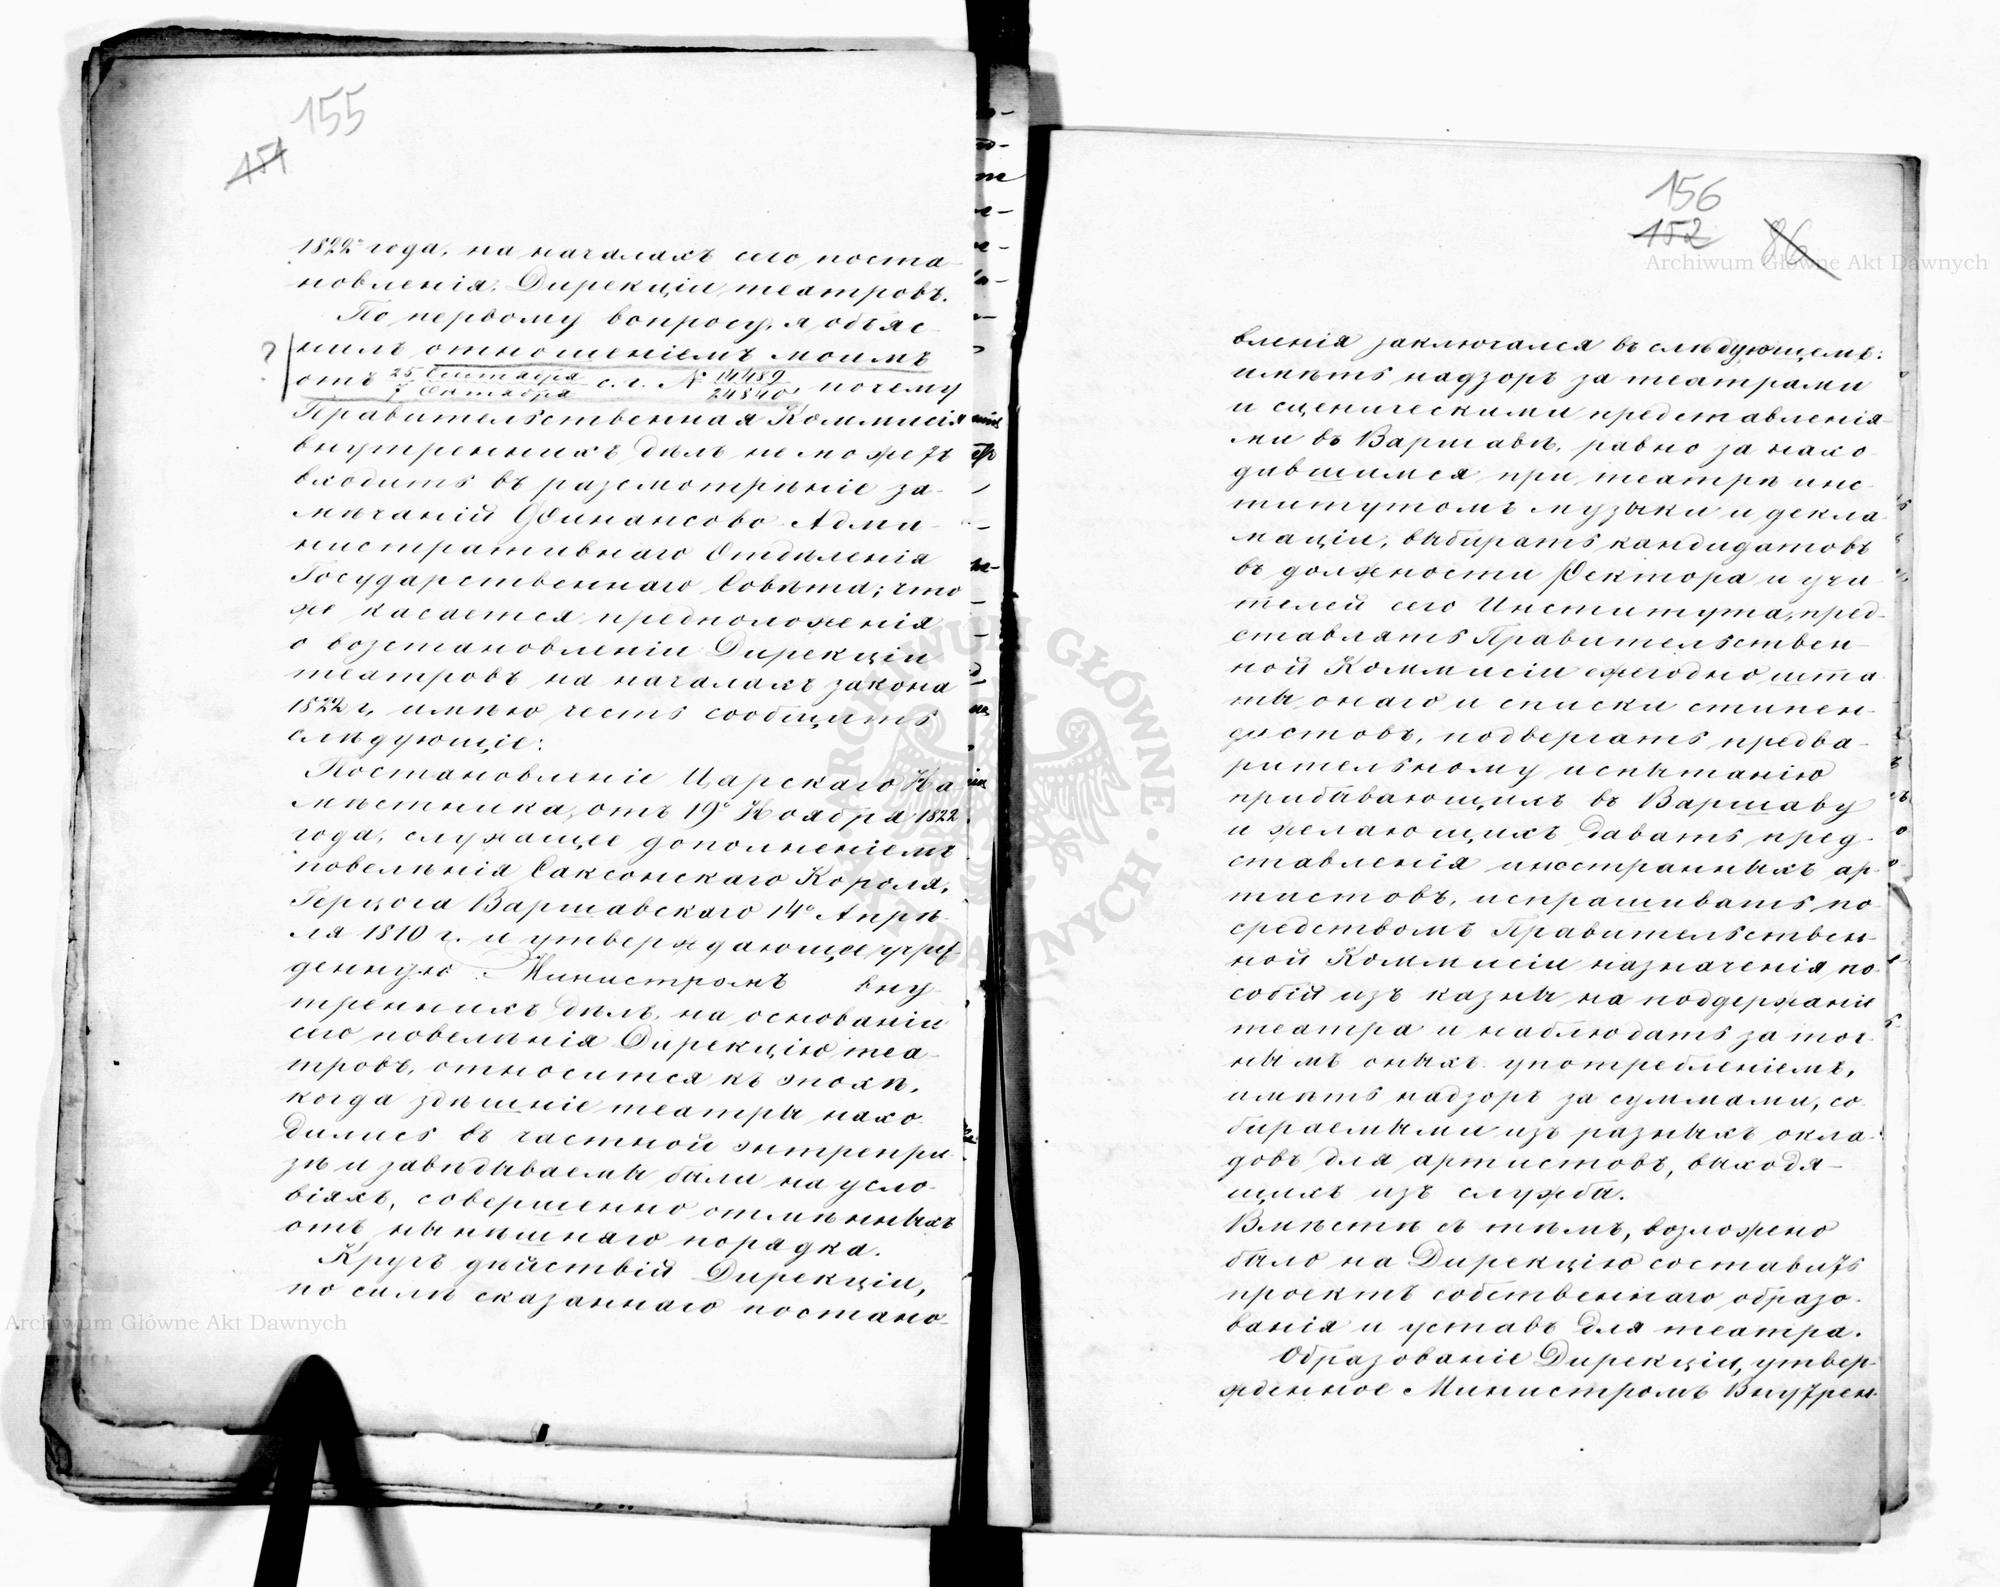 155
151
1822° года, на началахъ сего поста-
новленія, Дирекціи театровъ.
По первому вопросу, я объяс-
нилъ отношеніемъ моимъ
?
отъ 25 Сентября / 7 Октября с. г. № 14489 / 24840, почему
Правительственная Коммисія
внутреннихъ дѣлъ не можетъ
входить въ разсмотрѣніе за-
мѣчаній Финансово-Адми-
нистративнаго Отдѣленія
Государственнаго Совѣта; что
же касается предположенія
о возстановленіи Дирекціи
театровъ на началахъ закона
1822 г., имѣю честь сообщить
слѣдующіе:
Постановленіе Царскаго На-
мѣстника, отъ 19° Ноября 1822
года, служащее дополненіемъ
повелѣнія Саксонскаго Короля,
Герцога Варшавскаго 14° Апрѣ-
ля 1810 г. и утверждающее учреж-
денную Министромъ Вну-
треннихъ дѣлъ, на основаніи
сего повелѣнія Дирекцію теа-
тровъ, относится къ эпохѣ,
когда здѣшніе театры нахо-
дились въ частной энтрепри-
зѣ и завѣдываемы были на усло-
віяхъ, совершенно отмѣнныхъ
отъ нынѣшняго порядка.
Кругъ дѣйствій Дирекціи,
по силѣ сказаннаго постано-
156
152 86
вленія заключался въ слѣдующемъ:
имѣть надзоръ за театрами
и сценическими представленія-
ми въ Варшавѣ, равно за нахо-
дившимся при театрѣ инс-
титутомъ музыки и декла-
маціи, выбирать кандидатовъ
въ должности Ректора и учи-
телей сего Института, пред-
ставлять Правительствен-
ной Коммисіи ежегодно шта-
ты онаго и списки стипен-
дистовъ, подвергать предва-
рительному испытанію
прибывающихъ въ Варшаву
и желающихъ давать пред-
ставленія иностранныхъ ар-
тистовъ, испрашивать по-
средствомъ Правительствен-
ной Коммисіи назначенія по-
собій изъ казны на поддержаніе
театра и наблюдать за точ-
нымъ оныхъ употребленіемъ,
имѣть надзоръ за суммами, со-
бираемыми изъ разныхъ окла-
довъ для артистовъ, выходя-
щихъ изъ службы.
Вмѣстѣ съ тѣмъ, возложено
было на Дирекцію составить
проектъ собственнаго образо-
ванія и уставъ для театра.
Образованіе Дирекціи, утвер-
жденное Министромъ Внутрен-
Archiwum Główne Akt Dawnych
Archiwum Główne Akt Dawnych
ARCHIWUM GŁÓWNE AKT DAWNYCH